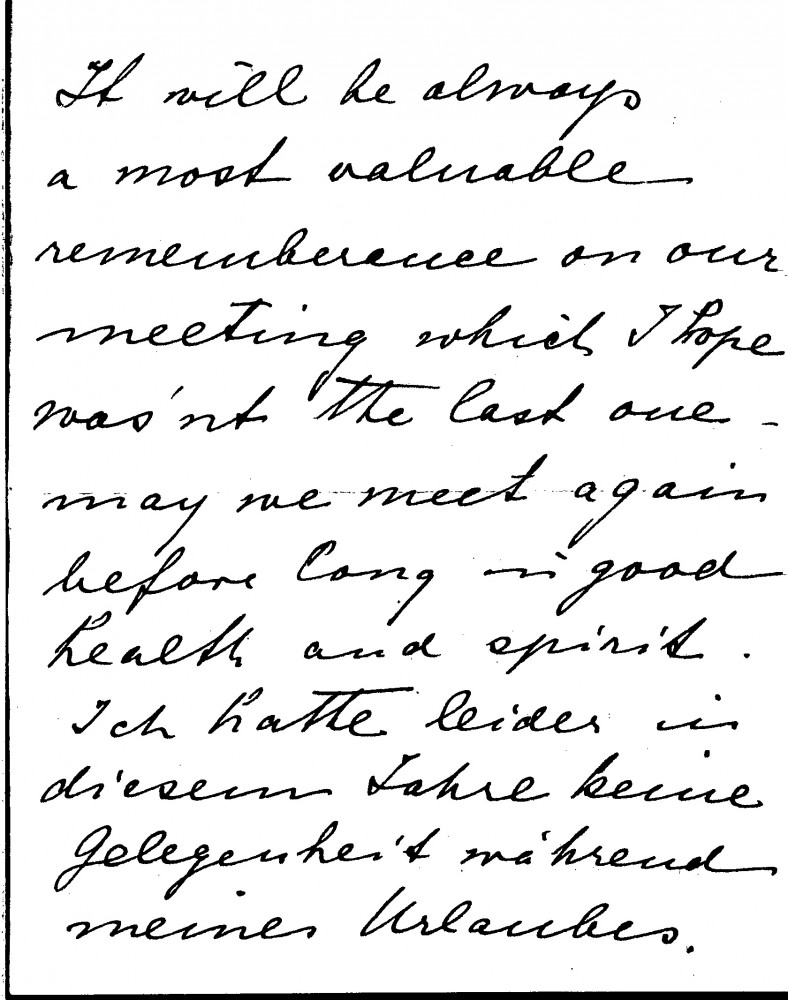 It will be always
a most valuable
rememberance on our
meeting which I hope
was'nt the last one -
may we meet again
before long in good
health and spirit.
Ich hatte leider in
diesem Jahre keine
Gelegenheit während
meines Urlaubes.